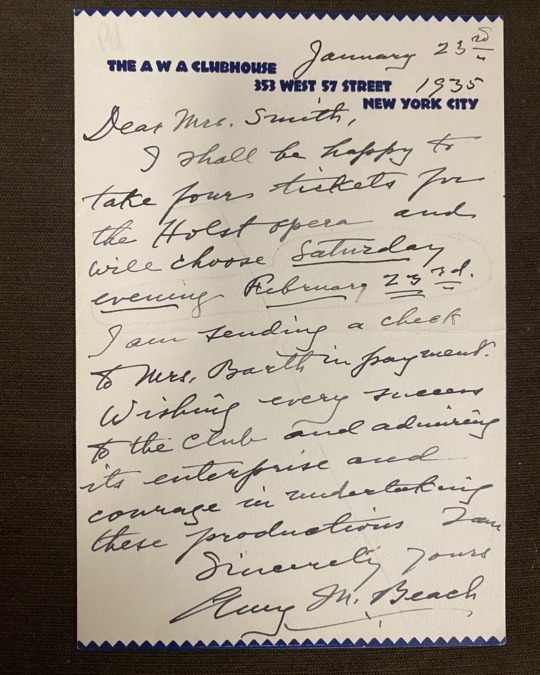 January 23rd
THE A W A CLUBHOUSE
353 WEST 57 STREET 1935
NEW YORK CITY
Dear Mrs. Smith,
I shall be happy to
take four tickets for
the Holst opera and
will choose Saturday
evening February 23rd.
I am sending a check
to Mrs. Barth in payment.
Wishing every success
to the club and admiring
its enterprise and
courage in undertaking
these productions I am
Sincerely yours
Amy M. Beach